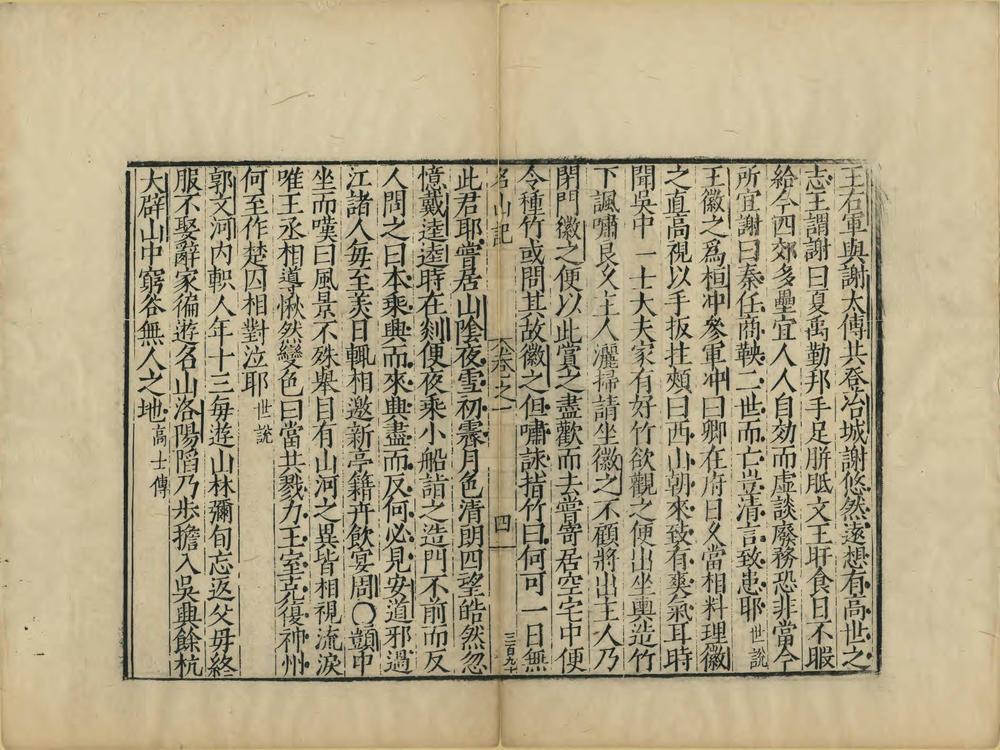 王右軍與謝太傅共登冶城謝悠然遠想有高世之
志王謂謝曰夏禹勤邦手足胼胝文王旰食日不暇
給今四郊多壘宜人人自効而虛談廢務恐非當今
所宜謝曰秦任商鞅二世而亡豈清言致患耶世說
王徽之爲桓冲參軍冲曰卿在府日久當相料理徽
之直高視以手扳拄頰曰西山朝來致有爽氣耳時
聞吳中一士大夫家有好竹欲觀之便出坐輿造竹
下諷嘯良久主人灑掃請坐徽之不顧將出主人乃
閉門徽之便以此賞之盡歡而去嘗寄居空宅中便
令種竹或問其故徽之但嘯詠指竹曰何可一日無
名山記 卷之一 四 三百九十
此君耶嘗居山陰夜雪初霽月色清朗四望皓然忽
憶戴逵逵時在剡便夜乘小船詣之造門不前而反
人問之曰本乘興而來興盡而反何必見安道邪過
江諸人每至美日輒相邀新亭籍卉飲宴周○顗中
坐而嘆曰風景不殊舉目有山河之異皆相視流淚
唯王丞相導愀然變色曰當共戮力王室克復神州
何至作楚囚相對泣耶世說
郭文河內軹人年十三每遊山林彌旬忘返父母終
服不娶辭家徧遊名山洛陽陷乃步擔入吳興餘杭
大辟山中窮谷無人之地高士傳